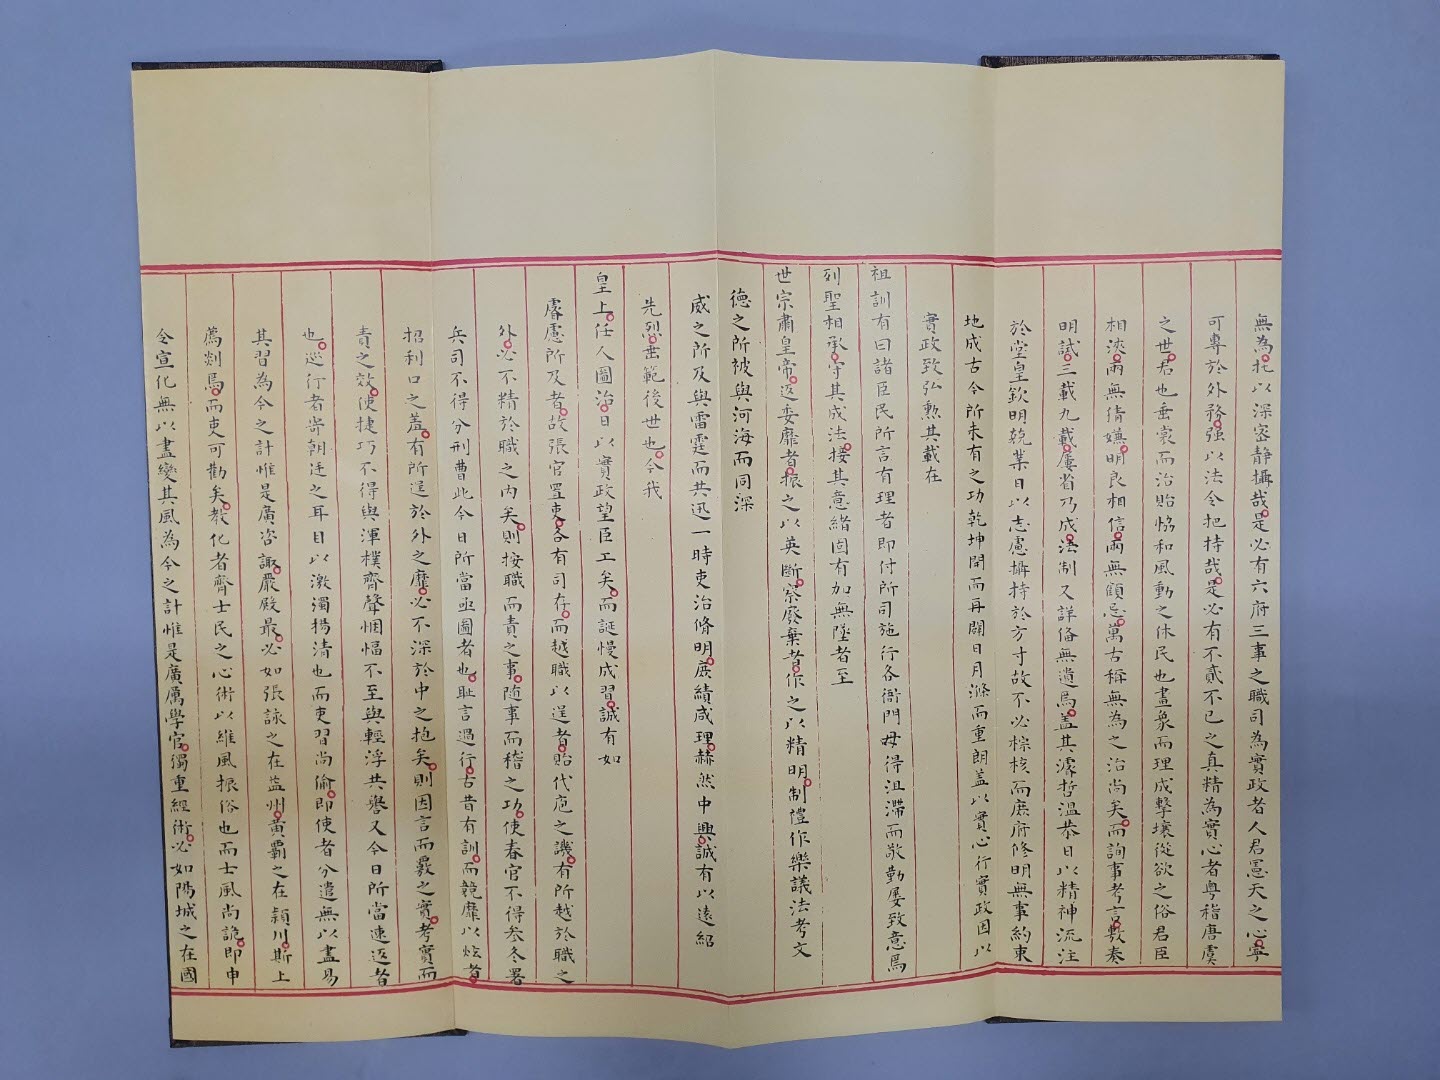 無為托以深宻静攝哉是必有六府三事之職司為實政者人君憲天之心寧
可專於外務強以法令把持哉是必有不貳不已之真精為實心者粤稽唐虞
之世君也垂裳而治貽恊和風動之休民也畫象而理成擊壤從欲之俗君臣
相浹兩無猜嫌明良相信兩無顧忌萬古稱無為之治尚矣而詢事考言敷奏
明試三載九載屢省乃成法制又詳俻無遺焉盖其濬哲温恭日以精神流注
於堂皇欽明兢業日以志慮攝持於方寸故不必綜核而庶府修明無事約束
地成古今所未有之功乾坤開而再闢日月滌而重朗盖以實心行實政因以
實政致弘勲其載在
祖訓有曰諸臣民所言有理者即付所司施行各衙門毋得沮滯而敬勤屡致意焉
列聖相承守其成法接其意緒固有加無墜者至
世宗肅皇帝返委靡者振之以英断察廢棄者作之以精明制禮作樂議法考文
德之所被與河海而同深
威之所及與雷霆而共迅一時吏治脩明庶績咸理赫然中興誠有以遠紹
先烈垂範後世也今我
皇上任人圖治日以實政望臣工矣而誕慢成習誠有如
睿慮所及者故張官置吏各有司存而越職以逞者貽代庖之譏有所越於職之
外必不精於職之内矣則按職而責之事随事而稽之功使春官不得叅冬署
兵司不得分刑曹此今日所當亟圖者也耻言過行古昔有訓而競靡以炫者
招利口之羞有所逞於外之靡必不深於中之抱矣則因言而覈之實考實而
責之效使捷巧不得與渾樸齊聲悃愊不至與輕浮共譽又今日所當速返者
也巡行者寄朝廷之耳目以激濁揚清也而吏習尚偷即使者分遣無以盡易
其習為今之計惟是廣咨諏嚴殿最必如張詠之在益州黄覇之在潁川斯上
薦剡焉而吏可勸矣教化者齊士民之心術以維風振俗也而士風尚詭即申
令宣化無以盡變其風為今之計惟是廣厲學官獨重經術必如陽城之在國